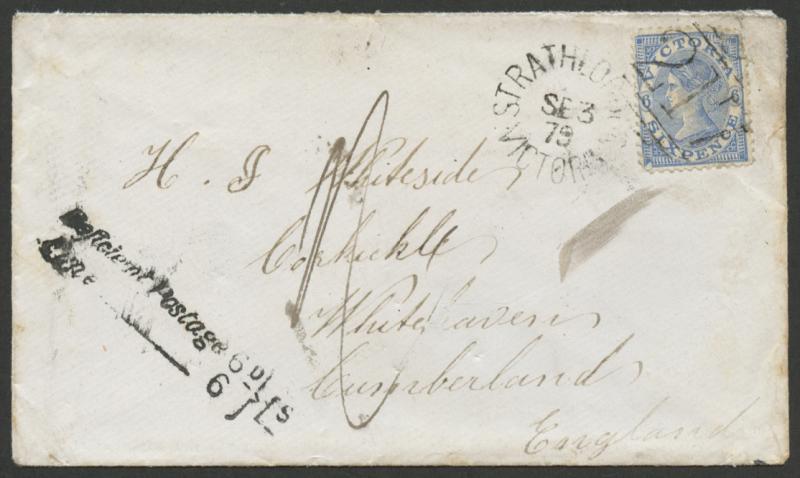 STRATHLO
SE 3
79
VICTORIA
VICTORIA
6 6
SIXPENCE
H. J Whiteside
Corkickle
Whitehaven
Cumberland
England
Deficient Postage 6D
Fine 6
1/S